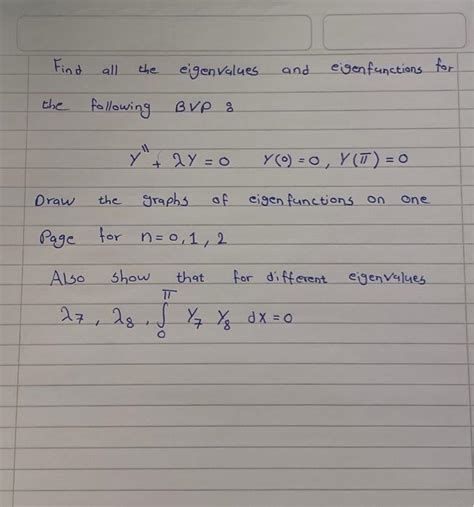 Find all the eigenvalues and eigenfunctions for
the following BVP :
y'' + λy = 0   y(0) = 0, y(π) = 0
Draw the graphs of eigenfunctions on one
Page for n = 0, 1, 2
Also show that for different eigenvalues
λ₇, λ₈, ∫₀^π y₇ y₈ dx = 0